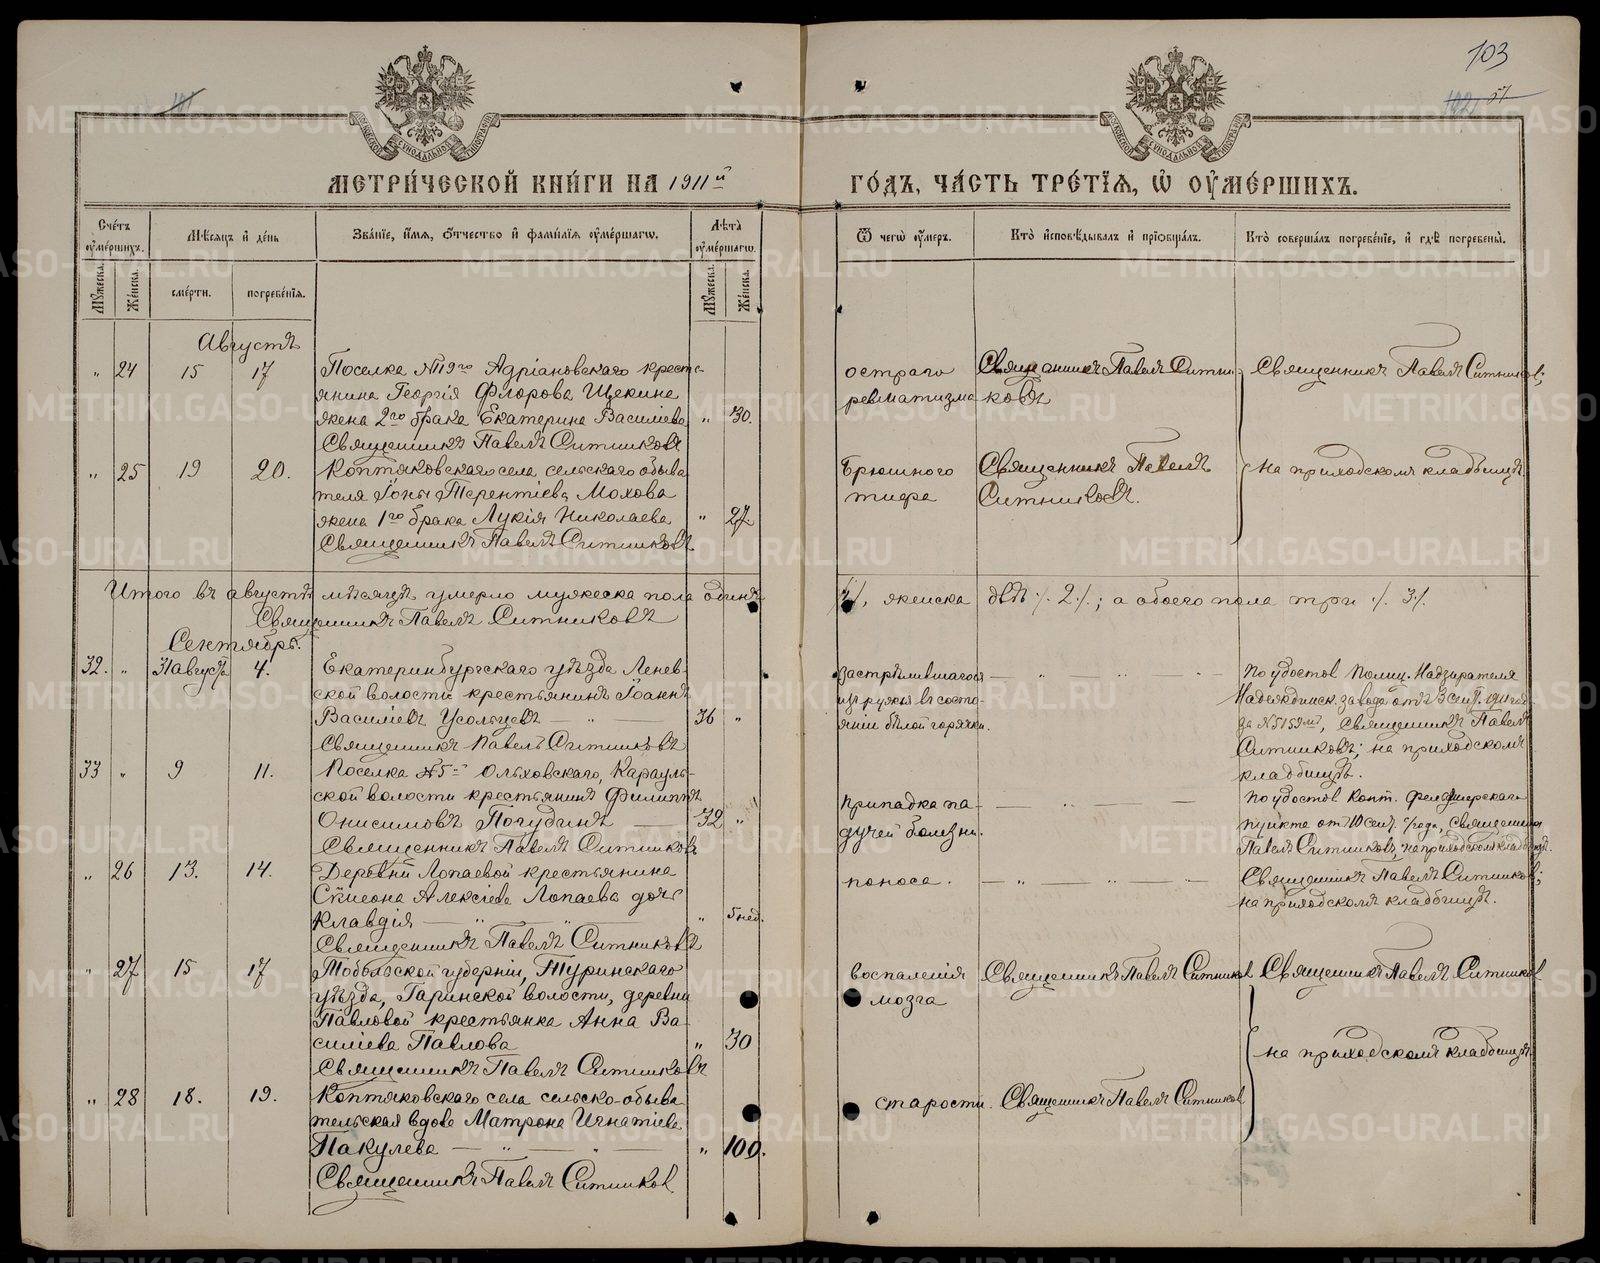 103
57
МЕТРИ́ЧЕСКОЙ КНИ́ГИ НА 1911й
ГО́ДЪ, ЧА́СТЬ ТРЕ́ТІЯ, Ѡ ОУМЕ́РШИХЪ.
Сче́тъ оумершихъ.
Мѣсяцъ и де́нь
Зва́ніе, и́мя, о́тчество и фами́лія оуме́ршагѡ.
Лѣта̀ оуме́ршагѡ.
Ѿ чегѡ̀ оу́меръ.
Кто̀ исповѣ́дывалъ и пріобща́лъ.
Кто̀ соверша́лъ погребе́ніе, и гдѣ̀ погребены̀.
Мꙋжеска. Же́нска. сме́рти. погребе́нія. Мꙋжеска. Же́нска.
Августъ
" 24 15 17
Поселка №19го Адріановскаго кресть-
янина Георгія Флорова Щекина
жена 2го брака Екатерина Василіева " 30.
Священникъ Павелъ Ситниковъ
остраго
ревматизма
Священникъ Павелъ Ситни-
ковъ
Священникъ Павелъ Ситников;
" 25 19 20.
Коптяковскаго села сельскаго обыва
теля Іоны Терентіева Мохова
жена 1го брака Лукія Николаева " 27
Священникъ Павелъ Ситниковъ
Брюшного
тифа
Священникъ Павелъ
Ситниковъ.
на приходскомъ кладбищѣ.
Итого въ августѣ мѣсяцѣ умерло мужеска пола одинъ
/1/, женска двѣ ·/. 2 ·/.; а обоего пола три ·/. 3 /.
Священникъ Павелъ Ситниковъ
Сентябрь.
32. " 31 Августа 4.
Екатеринбургскаго уѣзда Ленев-
ской волости крестьянинъ Іоаннъ
Василіевъ Усольцевъ — " — 36 "
Священникъ Павелъ Ситниковъ
застрѣлившагося
изъ ружья въ состо-
яніи бѣлой горячки.
По удостов. Полиц. Надзирателя
Надеждинск. завода отъ 3 Сент. 1911 года
за №5159м, Священникъ Павелъ
Ситниковъ; на приходскомъ
кладбищѣ.
33 " 9 11.
Поселка №5го Ольховскаго, Карауль-
ской волости крестьянинъ Филиппъ
Онисимовъ Погудинъ — 32 "
Священникъ Павелъ Ситников
Припадка па-
дучей болезни.
По удостов. Копт. Фельдшерскаго
пункта от 10 сент. с/года, Священникъ
Павелъ Ситниковъ, на приходскомъ кладбищѣ.
" 26 13. 14.
Деревни Лопаевой крестьянина
Сѵмеона Алексіева Лопаева дочь
Клавдія — " — " " 5 нед.
Священникъ Павелъ Ситниковъ
поноса.
Священникъ Павелъ Ситников;
на приходскомъ кладбищѣ.
" 27 15 17
Тобольской губерніи, Туринскаго
уѣзда, Гаринской волости, деревни
Павловой крестьянка Анна Ва-
силіева Павлова " 30
Священникъ Павелъ Ситниковъ
воспаленія
мозга
Священникъ Павелъ Ситников
Священникъ Павелъ Ситников
на приходскомъ кладбищѣ.
" 28 18. 19.
Коптяковскаго села сельско-обыва
тельская вдова Матрона Игнатіева
Пакулева — " — " — " 100.
Священникъ Павелъ Ситников
старости.
Священникъ Павелъ Ситников
METRIKI.GASO-URAL.RU